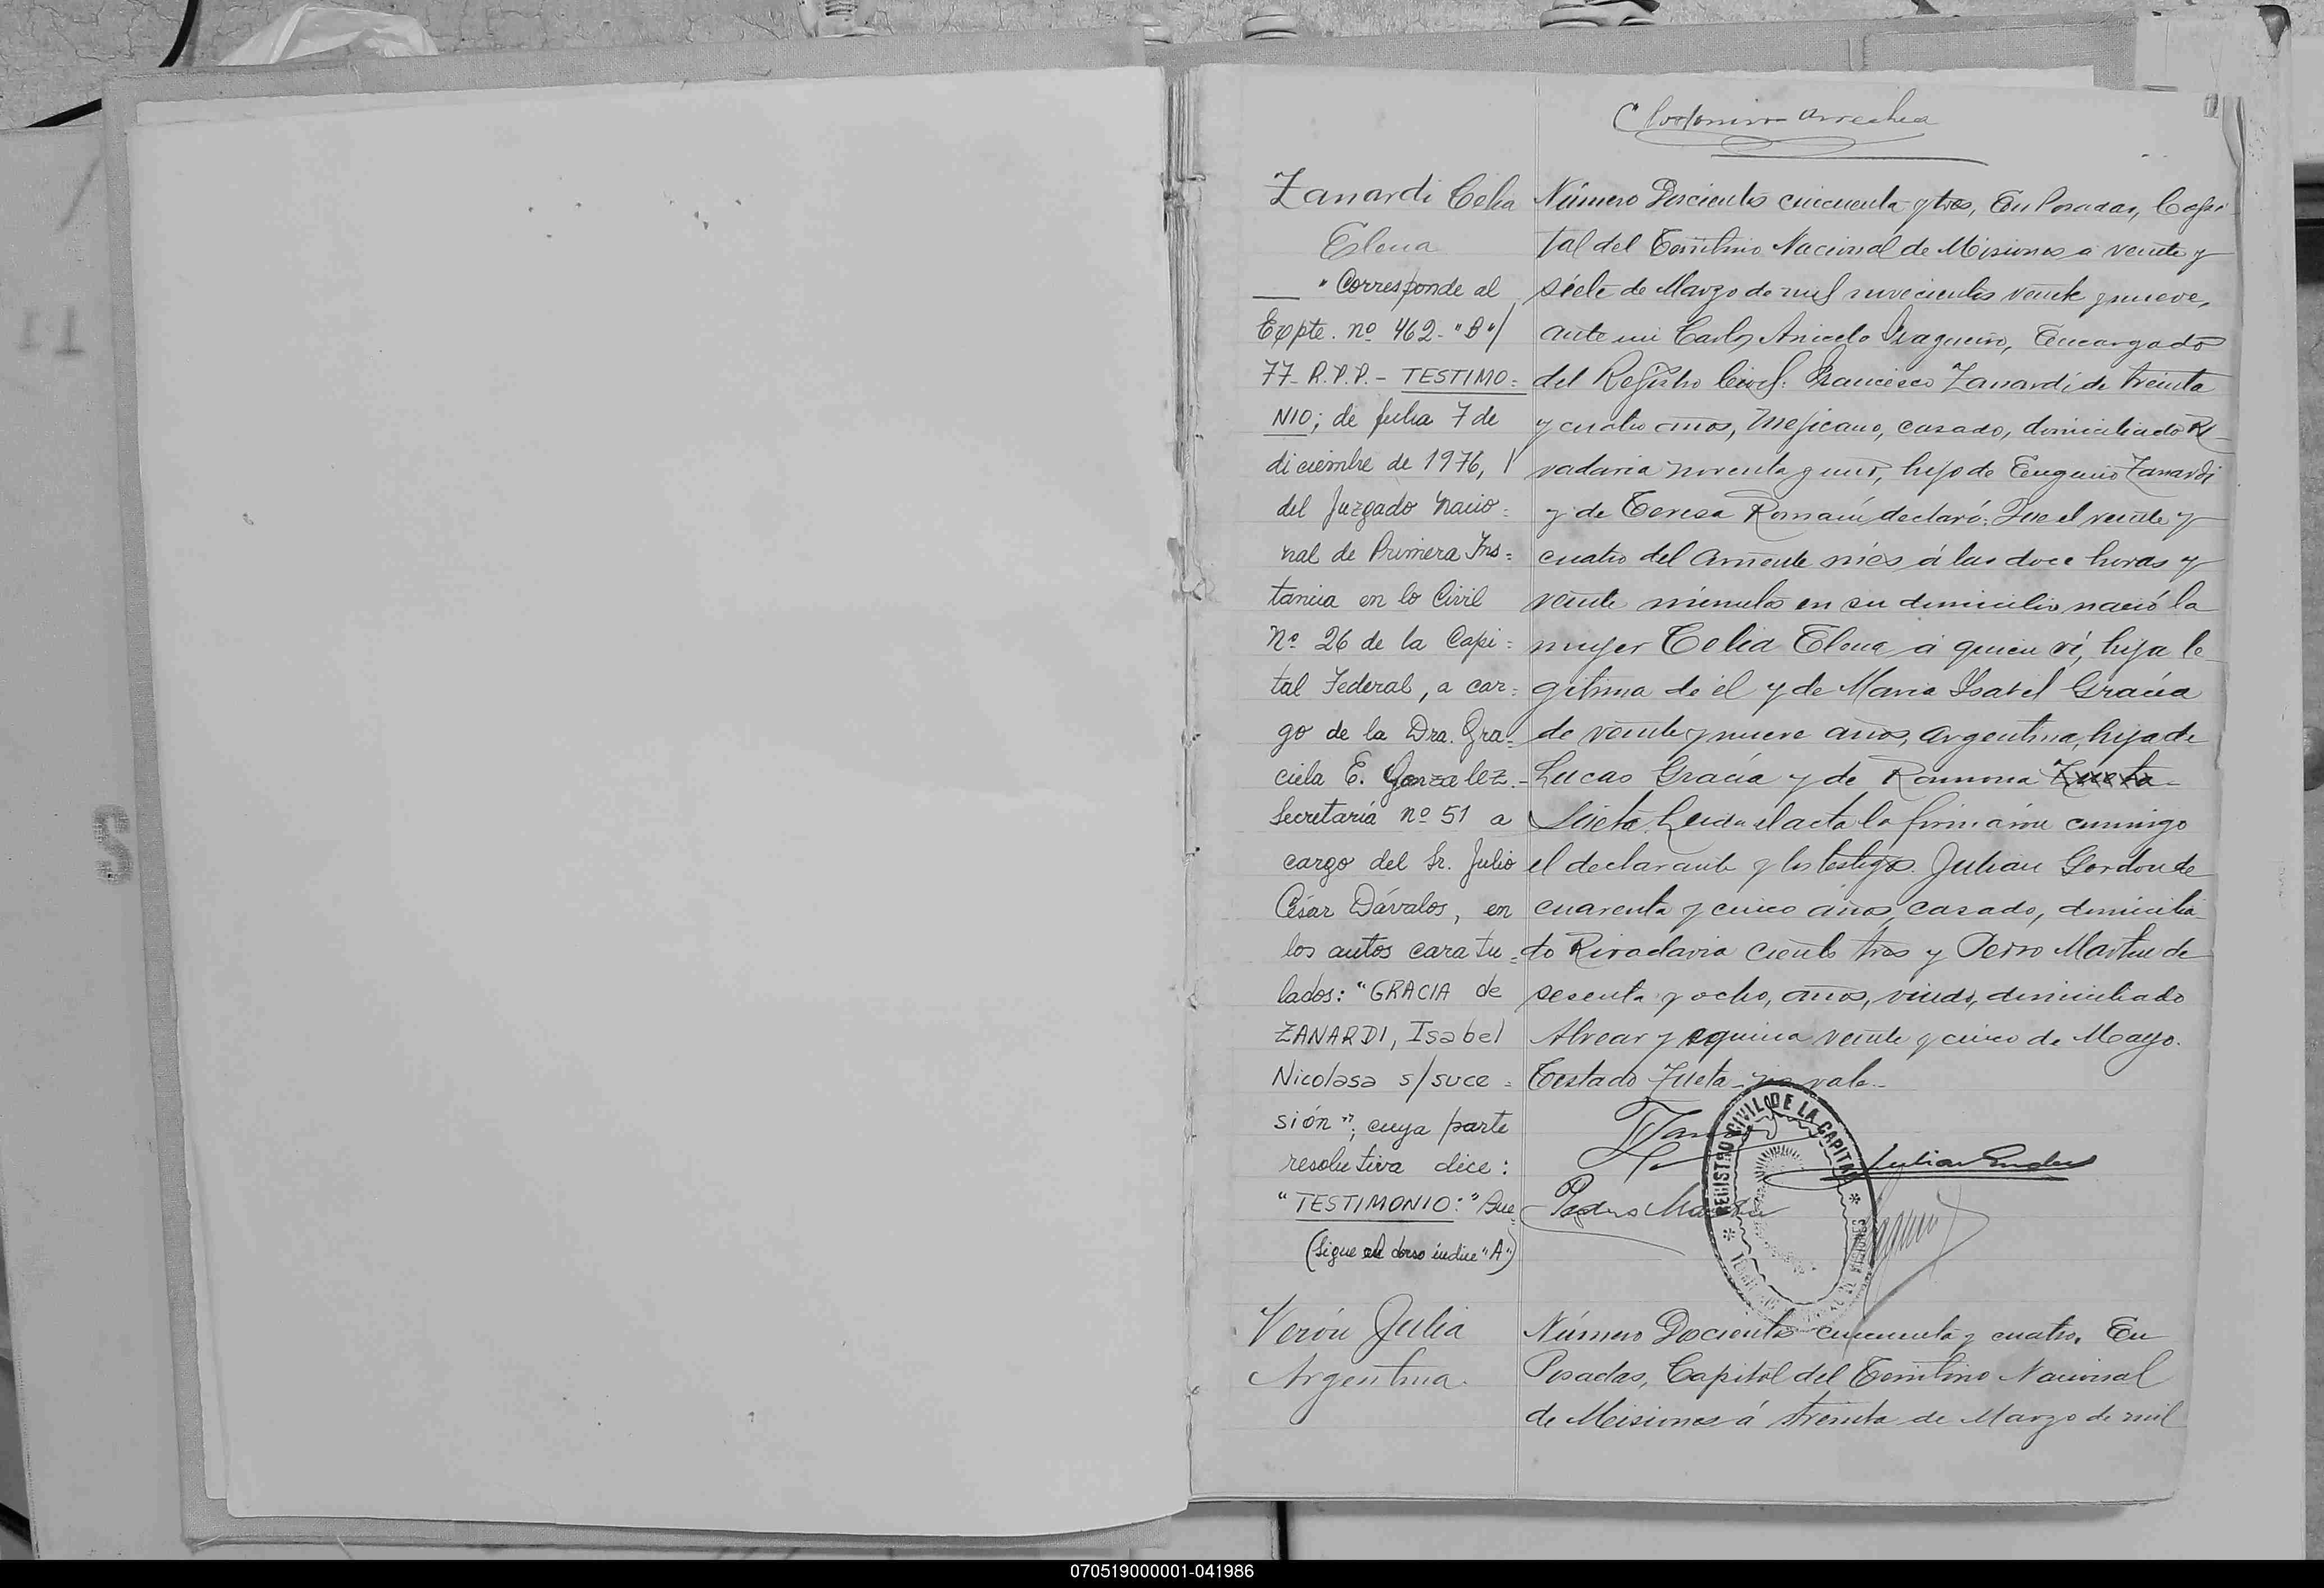 Clodomiro Arrechea
Zanardi Celia
Elena
" Corresponde al
Expte. nº 462- "B"/
77- R.P.P.- TESTIMO=
NIO; de fecha 7 de
diciembre de 1976,
del Juzgado Nacio=
nal de Primera Ins=
tancia en lo Civil
Nº 26 de la Capi=
tal Federal, a car=
go de la Dra. Gra=
ciela E. Gonzalez.-
Secretaría nº 51 a
cargo del Sr. Julio
César Dávalos, en
los autos caratu=
lados: "GRACIA de
ZANARDI, Isabel
Nicolasa s/suce=
sión"; cuya parte
resolutiva dice:
"TESTIMONIO:" Bue
(Sigue al dorso índice "A")
Número Doscientos cincuenta y tres, En Posadas, Capi-
tal del Territorio Nacional de Misiones a veinte y
siete de Marzo de mil novecientos veinte y nueve,
ante mi Carlos Aniceto, Encargado
del Registro Civil: Francisco Zanardi de treinta
y cuatro años, Mejicano, casado, domiciliado Ri-
vadavia noventa y uno, hijo de Eugenio Zanardi
y de Teresa Román declaró: Que el veinte y
cuatro del corriente mes á las doce horas y
veinte minutos en su domicilio nació la
mujer Celia Elena a quien ví, hija le-
gitima de él y de Maria Isabel Gracia
de veinte y nueve años, argentina, hija de
Lucas Gracia y de Ramona Zueta
Sueta. Leída el acta la firmaron conmigo
el declarante y los testigos. Julian Gordon de
cuarenta y cinco años, casado, domicilia-
do Rivadavia ciento tres y Pedro Martin de
sesenta y ocho, años, viudo, domiciliado
Alvear y esquina veinte y cinco de Mayo.
Testado Zueta no vale.-
REGISTRO CIVIL DE LA CAPITAL
Pedro Martin
Verón Julia
Argentina.
Número Docientos cincuenta y cuatro. En
Posadas, Capital del Territorio Nacional
de Misiones á treinta de Marzo de mil
070519000001-041986